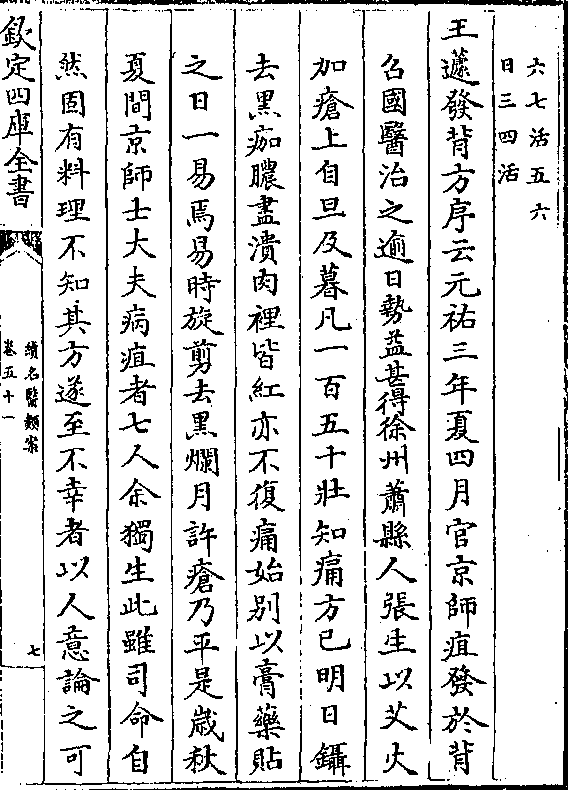 六七活五六
日三四活
王蘧發背方序云元祐三年夏四月官京師疽發於背
召國醫治之逾日勢益甚得徐州蕭縣人張生以艾火
加瘡上自旦及暮凡一百五十壯知痛方已明日鑷
去黑痂膿盡潰肉裡皆紅亦不復痛始别以膏藥貼
之日一易焉易時旋剪去黑爛月許瘡乃平是嵗秋
夏間京師士大夫病疽者七人余獨生此雖司命自
然固有料理不知其方遂至不幸者以人意論之可
欽定四庫全書
續名醫類案
卷五十一
七